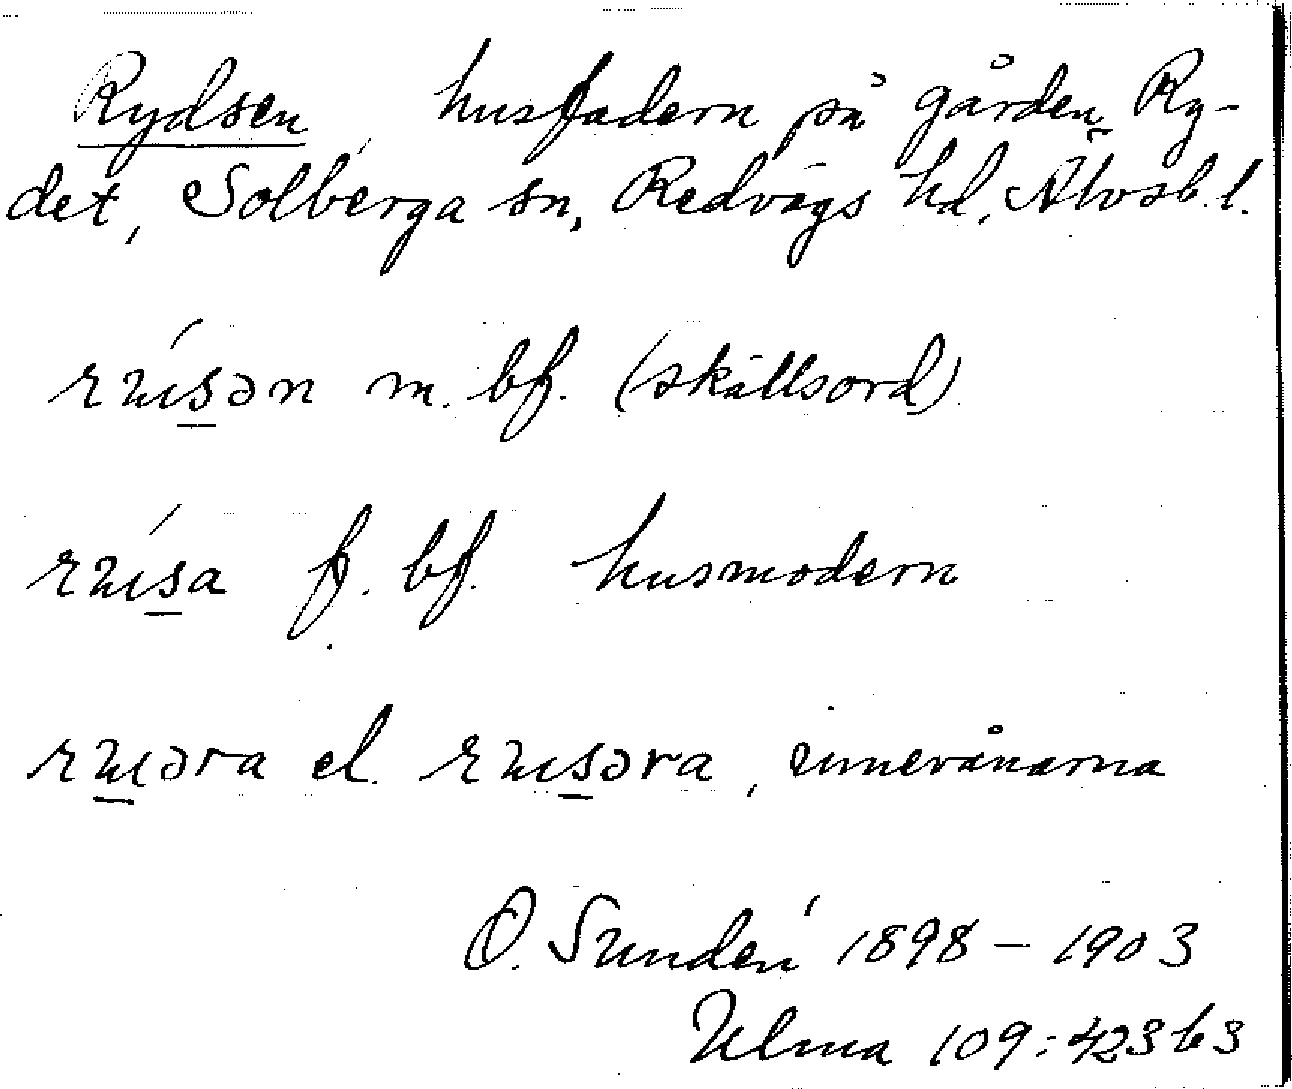 Rydsen, husfadern på gården Ry-
det, Solberga sn, Redvägs hd, Älvsb. l.
m. bf. (skällsord)
f. bf. husmodern
el. , innevånarna
O. Sundén 1898 – 1903
Ulma 109:423 b 3